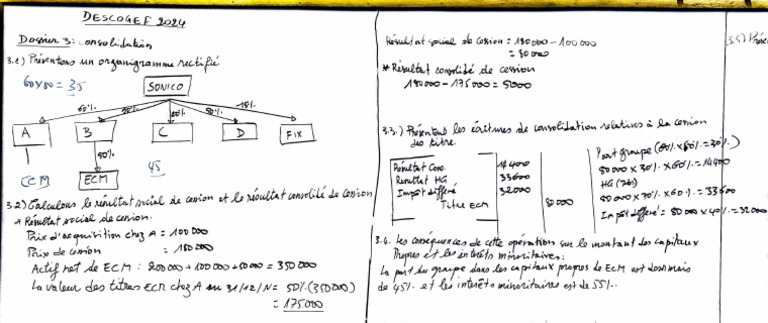 DESCOGEF 2024
Dossier 3: consolidation
3.1) Présentons un organigramme rectifié
60x50=35
SONICO
60% 90% 80% 50% 15%
A B C D FIX
50%
CCM ECM 45
3.2) Calculons le résultat social de cession et le résultat consolidé de cession
* Résultat social de cession.
Prix d'acquisition chez A = 100 000
Prix de cession = 180 000
Actif net de ECM : 200000 + 100 000 + 50000 = 350 000
La valeur des titres ECM chez A au 31/12/N = 50% (350000)
= 175.000
Résultat social de cession = 180 000 - 100 000
= 80 000
* Résultat consolidé de cession
180 000 - 175 000 = 5000
3.3.) Présentons les écritures de consolidation relatives à la cession
des titre.
Résultat Conso. 14400
Resultat HG 33600
Impôt différé 32000
Titre ECM 80 000
Part groupe (60% x 50% = 30%)
80 000 x 30% x 60% = 14400
HG (70%)
80 000 x 70% x 60% = 33600
Impôt différé = 80 000 x 40% = 32000
3.4. Les conséquences de cette opération sur le montant des capitaux
Propres et les intérêts minoritaires:
La part du groupe dans les capitaux propres de ECM est désormais
de 45% et les intérêts minoritaires est de 55%.
(3.5)